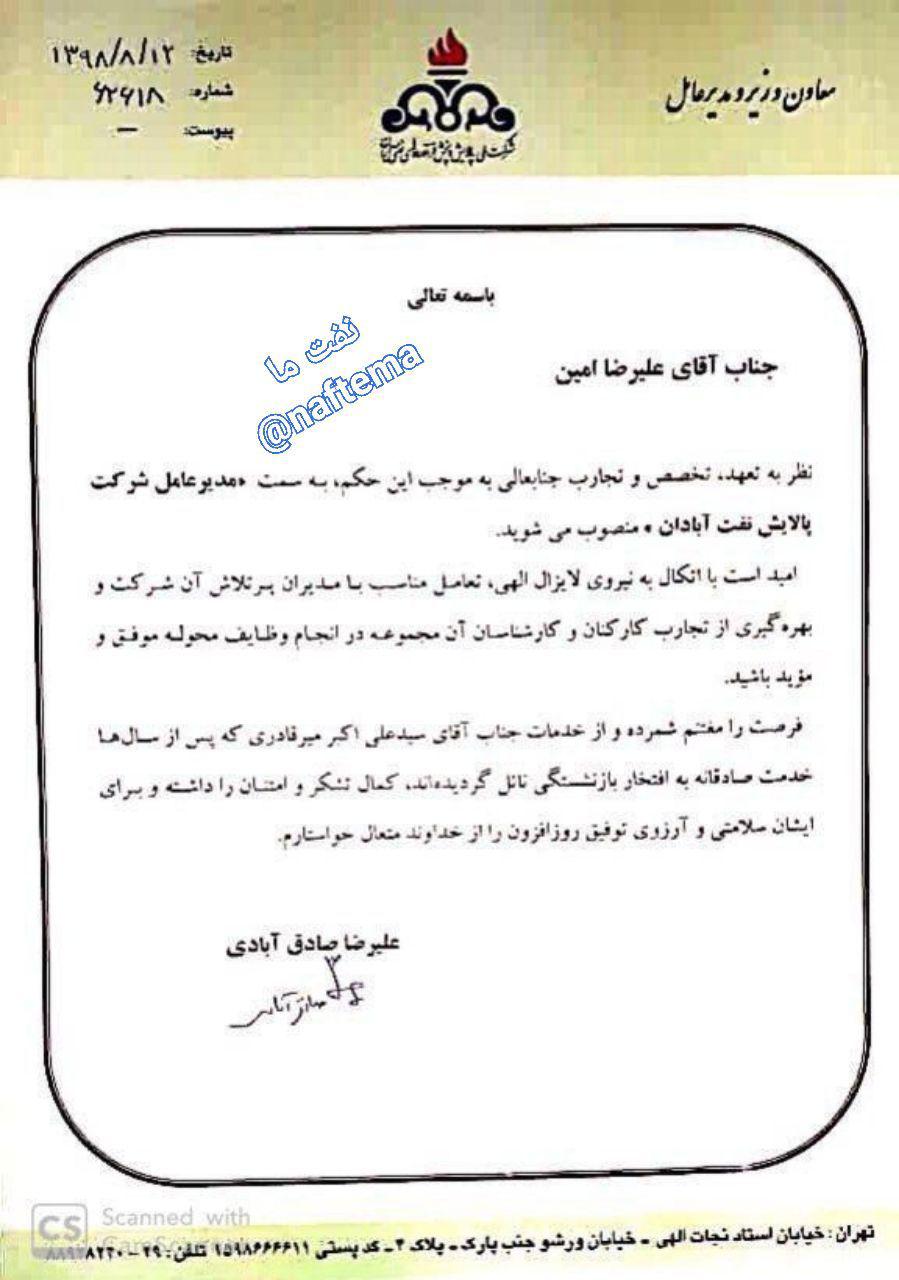 معاون وزیر و مدیرعامل
شرکت ملی پالایش و پخش فرآورده‌های نفتی ایران
تاریخ: ۱۳۹۸/۸/۱۲
شماره: ۶۲۶۱۸
پیوست: —
باسمه تعالی
نفت ما
@naftema
جناب آقای علیرضا امین
نظر به تعهد، تخصص و تجارب جنابعالی به موجب این حکم، به سمت «مدیرعامل شرکت
پالایش نفت آبادان » منصوب می شوید.
امید است با اتکال به نیروی لایزال الهی، تعامل مناسب با مدیران پرتلاش آن شرکت و
بهره‌گیری از تجارب کارکنان و کارشناسان آن مجموعه در انجام وظایف محوله موفق و
مؤید باشید.
فرصت را مغتنم شمرده و از خدمات جناب آقای سیدعلی اکبر میرقادری که پس از سال‌ها
خدمت صادقانه به افتخار بازنشستگی نائل گردیده‌اند، کمال تشکر و امتنان را داشته و برای
ایشان سلامتی و آرزوی توفیق روزافزون را از خداوند متعال خواستارم.
علیرضا صادق آبادی
CS Scanned with
CamScanner
تهران : خیابان استاد نجات الهی - خیابان ورشو جنب پارک - پلاک ۴ - کد پستی ۱۵۹۸۶۶۶۶۱۱ تلفن: